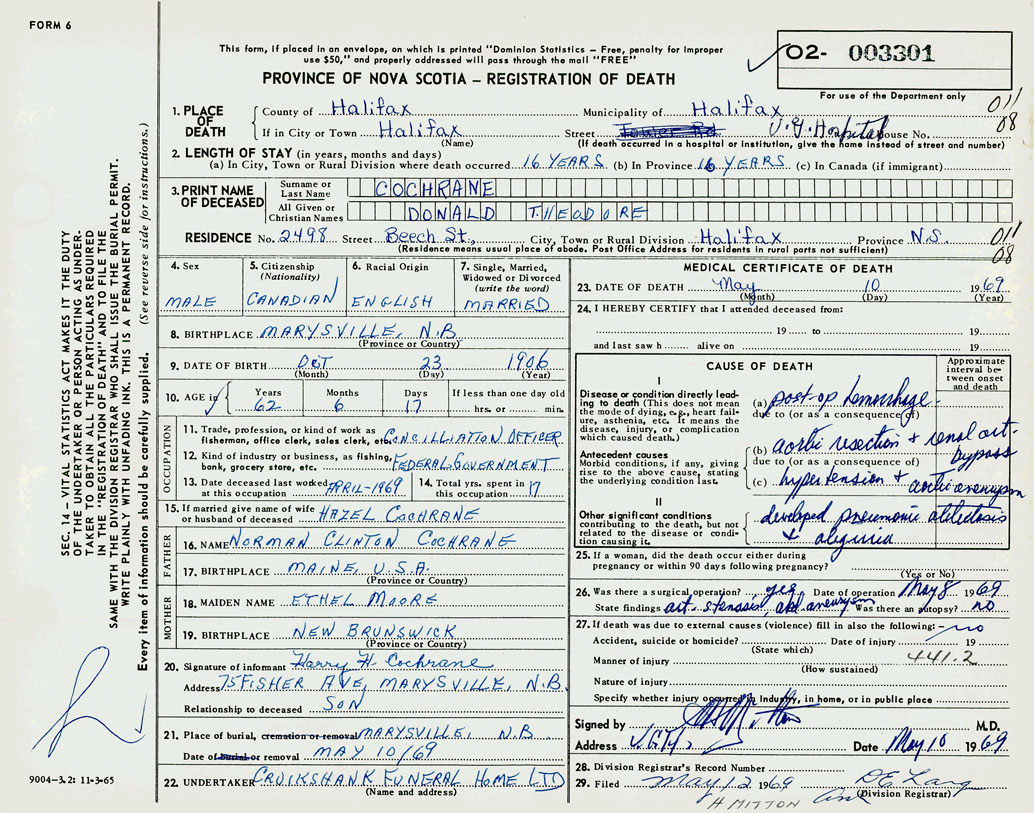 FORM 6
This form, if placed in an envelope, on which is printed "Dominion Statistics – Free, penalty for improper
use $50," and properly addressed will pass through the mail "FREE"
02- 003301
For use of the Department only
PROVINCE OF NOVA SCOTIA – REGISTRATION OF DEATH
011
08
1. PLACE OF DEATH
County of Halifax Municipality of Halifax
If in City or Town Halifax Street Tower Rd V.G. Hospital House No.
(Name) (If death occurred in a hospital or Institution, give the name instead of street and number)
2. LENGTH OF STAY (in years, months and days)
(a) In City, Town or Rural Division where death occurred 16 YEARS (b) In Province 16 YEARS (c) In Canada (if immigrant)
3. PRINT NAME OF DECEASED
Surname or Last Name COCHRANE
All Given or Christian Names DONALD THEODORE
RESIDENCE No. 2498 Street Beech St., City, Town or Rural Division Halifax Province N.S.
(Residence means usual place of abode. Post Office Address for residents in rural parts not sufficient)
011
08
4. Sex MALE
5. Citizenship (Nationality) CANADIAN
6. Racial Origin ENGLISH
7. Single, Married, Widowed or Divorced (write the word) MARRIED
8. BIRTHPLACE MARYSVILLE, N.B.
(Province or Country)
9. DATE OF BIRTH OCT 23 1906
(Month) (Day) (Year)
10. AGE in Years 62 Months 6 Days 17 If less than one day old hrs. or min.
OCCUPATION
11. Trade, profession, or kind of work as
fisherman, office clerk, sales clerk, etc. CONCILLIATION OFFICER
12. Kind of industry or business, as fishing,
bank, grocery store, etc. FEDERAL GOVERNMENT
13. Date deceased last worked at this occupation APRIL-1969
14. Total yrs. spent in this occupation 17
15. If married give name of wife or husband of deceased HAZEL COCHRANE
FATHER
16. NAME NORMAN CLINTON COCHRANE
17. BIRTHPLACE MAINE, U.S.A.
(Province or Country)
MOTHER
18. MAIDEN NAME ETHEL MOORE
19. BIRTHPLACE NEW BRUNSWICK
(Province or Country)
20. Signature of informant Harry H Cochrane
Address 75 FISHER AVE, MARYSVILLE, N.B.
Relationship to deceased SON
21. Place of burial, cremation or removal MARYSVILLE, N.B.
Date of burial or removal MAY 10/69
22. UNDERTAKER CRUIKSHANK FUNERAL HOME LTD
(Name and address)
MEDICAL CERTIFICATE OF DEATH
23. DATE OF DEATH May 10 1969
(Month) (Day) (Year)
24. I HEREBY CERTIFY that I attended deceased from:
19 to 19
and last saw h alive on 19
CAUSE OF DEATH
Approximate interval between onset and death
I
Disease or condition directly leading to death (This does not mean the mode of dying, e.g., heart failure, asthenia, etc. It means the disease, injury, or complication which caused death.)
(a) post-op hemorrhage
due to (or as a consequence of)
Antecedent causes
Morbid conditions, if any, giving rise to the above cause, stating the underlying condition last.
(b) aortic resection + renal art. bypass
due to (or as a consequence of)
(c) hypertension + aortic aneurysm
II
Other significant conditions contributing to the death, but not related to the disease or condition causing it.
developed pneumonic
25. If a woman, did the death occur either during
pregnancy or within 90 days following pregnancy?
(Yes or No)
26. Was there a surgical operation? yes Date of operation May 8 1969
State findings art. stenosis, aneurysm Was there an autopsy? no
27. If death was due to external causes (violence) fill in also the following: – no
Accident, suicide or homicide? Date of injury 19
(State which)
Manner of injury 441.2
(How sustained)
Nature of injury
Specify whether injury occurred in Industry, in home, or in public place
Signed by M.D.
Address Date May 10 1969
28. Division Registrar's Record Number
29. Filed May 12 1969
(Division Registrar)
H MITTON
SEC. 14 – VITAL STATISTICS ACT MAKES IT THE DUTY
OF THE UNDERTAKER OR PERSON ACTING AS UNDER-
TAKER TO OBTAIN ALL THE PARTICULARS REQUIRED
IN THE "REGISTRATION OF DEATH" AND TO FILE THE
SAME WITH THE DIVISION REGISTRAR WHO SHALL ISSUE THE BURIAL PERMIT.
WRITE PLAINLY WITH UNFADING INK. THIS IS A PERMANENT RECORD.
Every item of information should be carefully supplied. (See reverse side for instructions.)
9004–3.2: 11-3-65